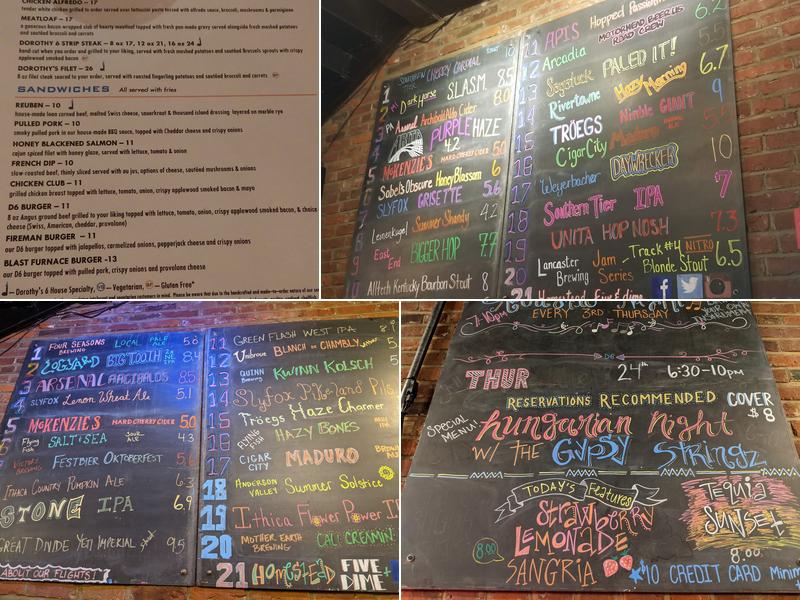 CHICKEN ALFREDO – 17
tender white chicken grilled to order served over fettuccini pasta tossed with alfredo sauce, broccoli, mushrooms & parmigiano
MEATLOAF – 17
a generous bacon wrapped club of hearty meatloaf topped with fresh pan-made gravy served alongside fresh mashed potatoes
and sautéed broccoli and carrots
DOROTHY 6 STRIP STEAK – 8 oz 17, 12 oz 21, 16 oz 24
hand-cut when you order and grilled to your liking, served with fresh mashed potatoes and sautéed brussels sprouts with crispy
applewood smoked bacon GF
DOROTHY'S FILET – 26
8 oz filet steak seared to your order, served with roasted fingerling potatoes and sautéed broccoli and carrots GF
SANDWICHES All served with fries
REUBEN – 10
house-made lean corned beef, melted Swiss cheese, sauerkraut & thousand island dressing layered on marble rye
PULLED PORK – 10
smoky pulled pork in our house-made BBQ sauce, topped with Cheddar cheese and crispy onions
HONEY BLACKENED SALMON – 11
cajun spiced filet with honey glaze, served with lettuce, tomato & onion
FRENCH DIP – 10
slow-roasted beef, thinly sliced served with au jus, options of cheese, sautéed mushrooms & onions
CHICKEN CLUB – 11
grilled chicken breast topped with lettuce, tomato, onion, crispy applewood smoked bacon & mayo
D6 BURGER – 11
8 oz Angus ground beef grilled to your liking topped with lettuce, tomato, onion, crispy applewood smoked bacon, & choice
cheese (Swiss, American, cheddar, provolone)
FIREMAN BURGER – 11
our D6 burger topped with jalapeños, carmelized onions, pepperjack cheese and crispy onions
BLAST FURNACE BURGER -13
our D6 burger topped with pulled pork, crispy onions and provolone cheese
– Dorothy's 6 House Specialty, VG – Vegetarian, GF – Gluten Free*
1 SOUTHERN TIER CHERRY CORDIAL 10
2 Dark Horse S.L.A.S.M. 8.5
3 Arsenal Archibald's Ado Cider 8.0
4 ABITA PURPLE HAZE 4.2
5 McKENZIE'S HARD CHERRY CIDER 5.0
6 Sobel's Obscure Honey Blossom 6
7 SLYFOX GRISETTE 5.6
8 Leinenkugel Summer Shandy 4.2
9 East End BIGGER HOP 7.7
10 Alltech Kentucky Bourbon Stout 8
11 APIS Hopped Passion 6.2
12 Arcadia MOTORHEAD BEERUS ROAD CREW 5.5
13 Sugstuck PALED IT! 6.7
14 Rivertowne Hazy Morning
15 TRÖEGS Nimble GIANT 9
16 Cigar City Maduro 5.5
17 Weyerbacher DAYWRECKER 10
18 Southern Tier IPA 7
19 UNITA HOP NOSH 7.3
20 Lancaster Brewing Jam Series Track #4 NITRO Blonde Stout 6.5
21 Homestead five & dime
1 FOUR SEASONS BREWING LOCAL PALE ALE 5.6
2 LOGYARD BIG TOOTH 8.4
3 ARSENAL ARCIBALDS 8.5
4 SLYFOX Lemon Wheat Ale 5.1
5 McKENZIE'S HARD CHERRY CIDER 5.0
6 Flying Fish SALT & SEA SOUR ALE 4.3
7 VICTORY BREWING FESTBIER OKTOBERFEST 5.6
ITHACA COUNTRY PUMPKIN ALE 6.3
STONE IPA 6.9
GREAT DIVIDE YETI IMPERIAL 9.5
ABOUT OUR FLIGHTS!
11 GREEN FLASH WEST IPA 8.
12 Unibroue BLANCH DE CHAMBLY 5
13 QUINN Brewing KWINN KOLSCH 5.
14 Slyfox Pikeland Pils
15 Tröegs Haze Charmer
16 FLYING FISH HAZY BONES
17 CIGAR CITY MADURO BROWN
18 ANDERSON VALLEY Summer Solstice
19 Ithica Flower Power IP
20 MOTHER EARTH BREWING CALI CREAMIN
21 HOMESTEAD FIVE DIME
7-10pm
EVERY 3RD THURSDAY
D6
THUR 24th 6:30-10pm
RESERVATIONS RECOMMENDED COVER $8
SPECIAL MENU! Hungarian Night
W/ THE GYPSY Stringz
TODAY'S Features
Strawberry
LEMONADE
SANGRIA
8.00
TEQUILA
SUNSET
8.00
$10 CREDIT CARD Minim